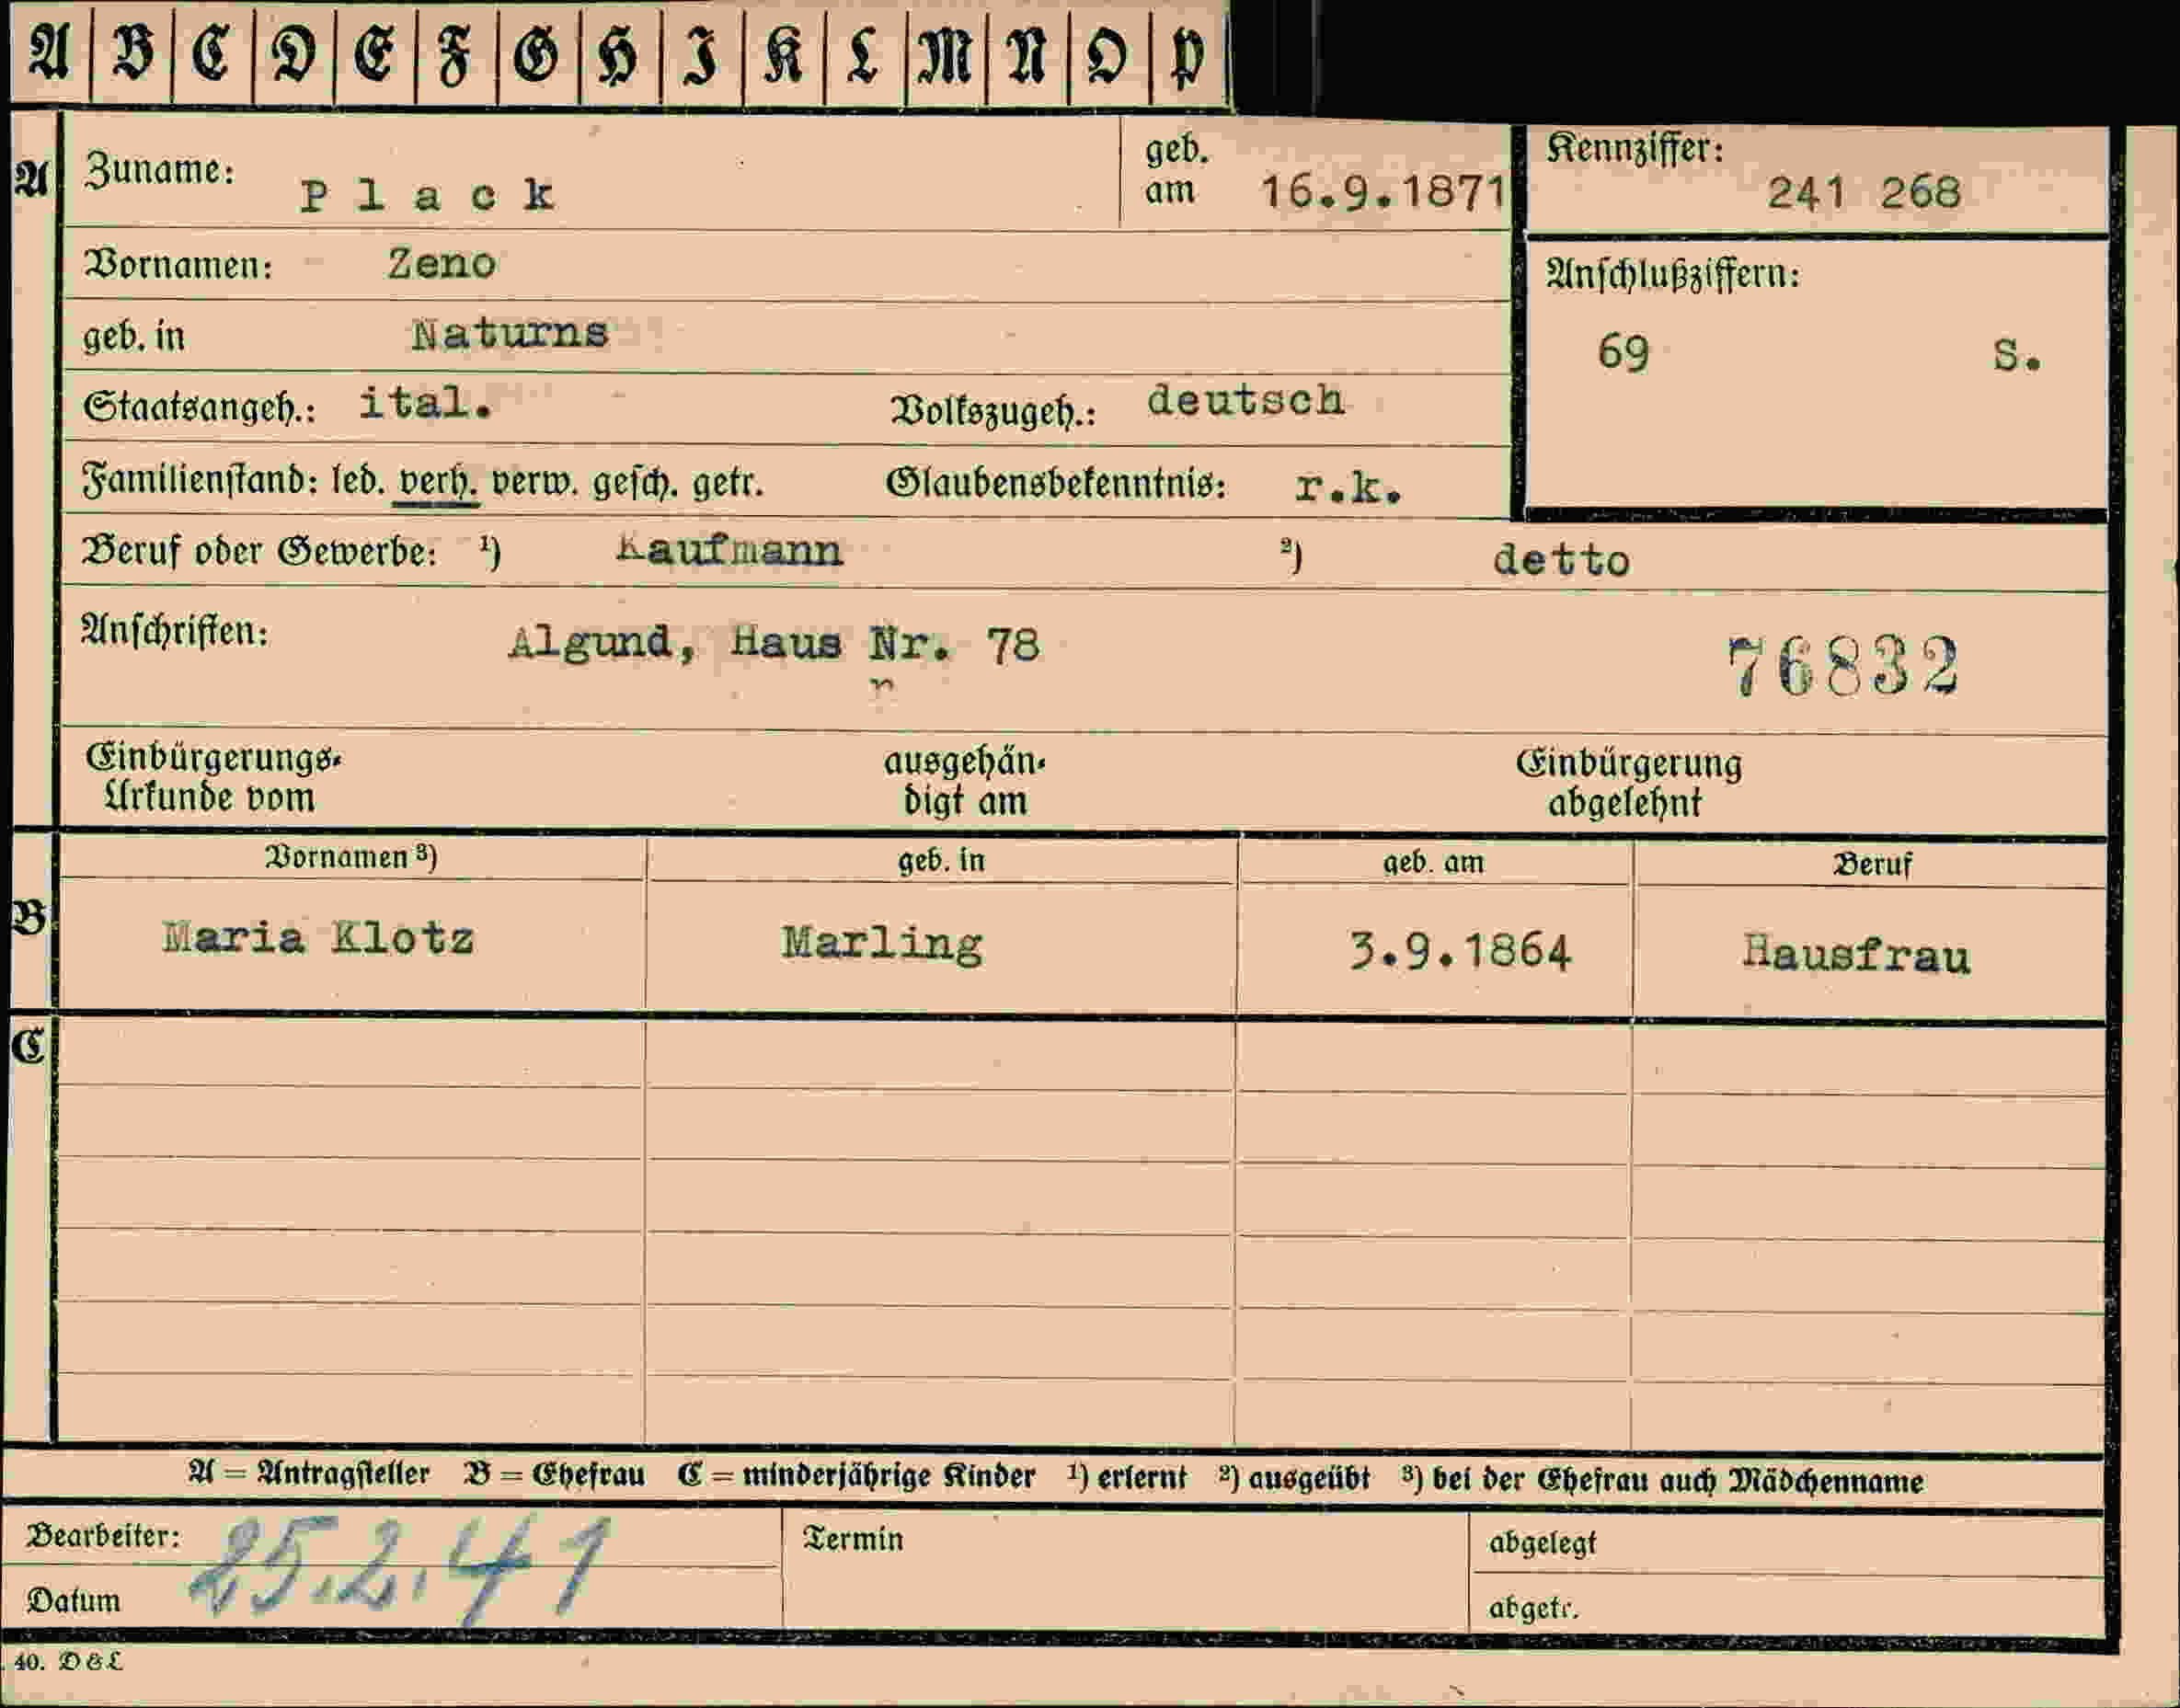 A B C D E F G H I K L M N O P
A Zuname: Plack geb. am 16.9.1871 Kennziffer: 241 268
Vornamen: Zeno
geb. in Naturns Anschlußziffern:
69 S.
Staatsangeh.: ital. Volkszugeh.: deutsch
Familienstand: led. verh. verw. gesch. getr. Glaubensbekenntnis: r.k.
Beruf oder Gewerbe: ¹) Kaufmann ²) detto
Anschriften: Algund, Haus Nr. 78 76832
n
Einbürgerungs- ausgehän- Einbürgerung
Urkunde vom digt am abgelehnt
Vornamen ³) geb. in geb. am Beruf
B Maria Klotz Marling 3.9.1864 Hausfrau
C
A = Antragsteller B = Ehefrau C = minderjährige Kinder ¹) erlernt ²) ausgeübt ³) bei der Ehefrau auch Mädchenname
Bearbeiter: 25.2.41 Termin abgelegt
Datum abgetr.
40. D & L